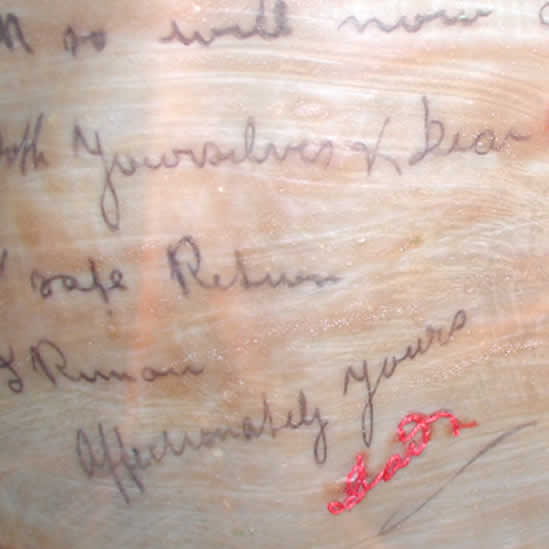 so will now
Yourselves & dear
safe Return
& Remain
Affectionately Yours